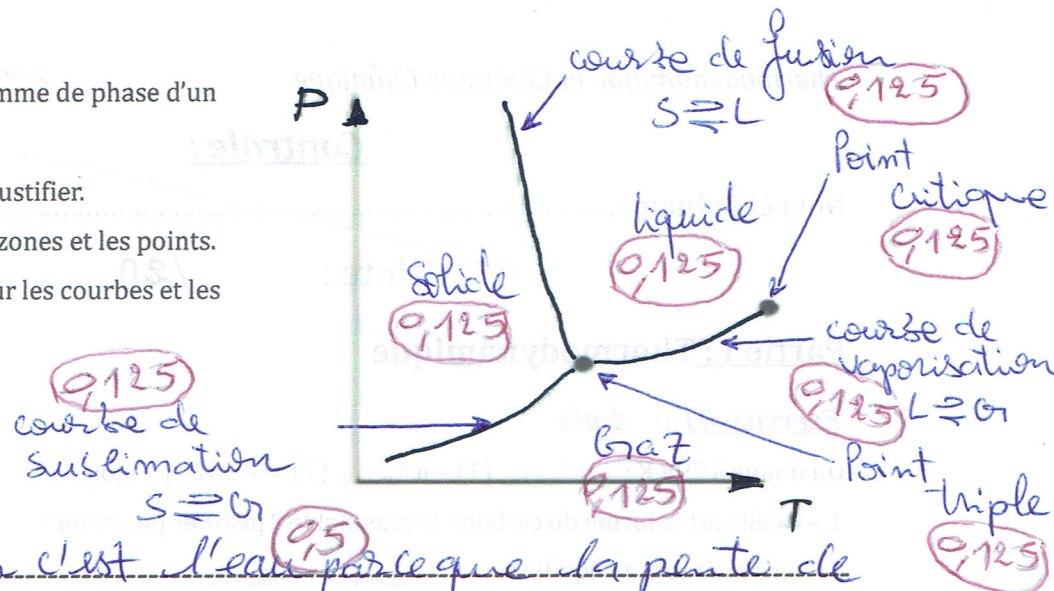 mme de phase d'un
ustifier.
zones et les points.
ur les courbes et les
P
courbe de fusion
0,125
S ⇌ L
Point
critique
0,125
liquide
0,125
solide
0,125
courbe de
vaporisation
0,125
L ⇌ G
0,125
courbe de
sublimation
S ⇌ G
GaZ
0,125
T
Point
triple
0,125
0,5
c'est l'eau parceque la pente de